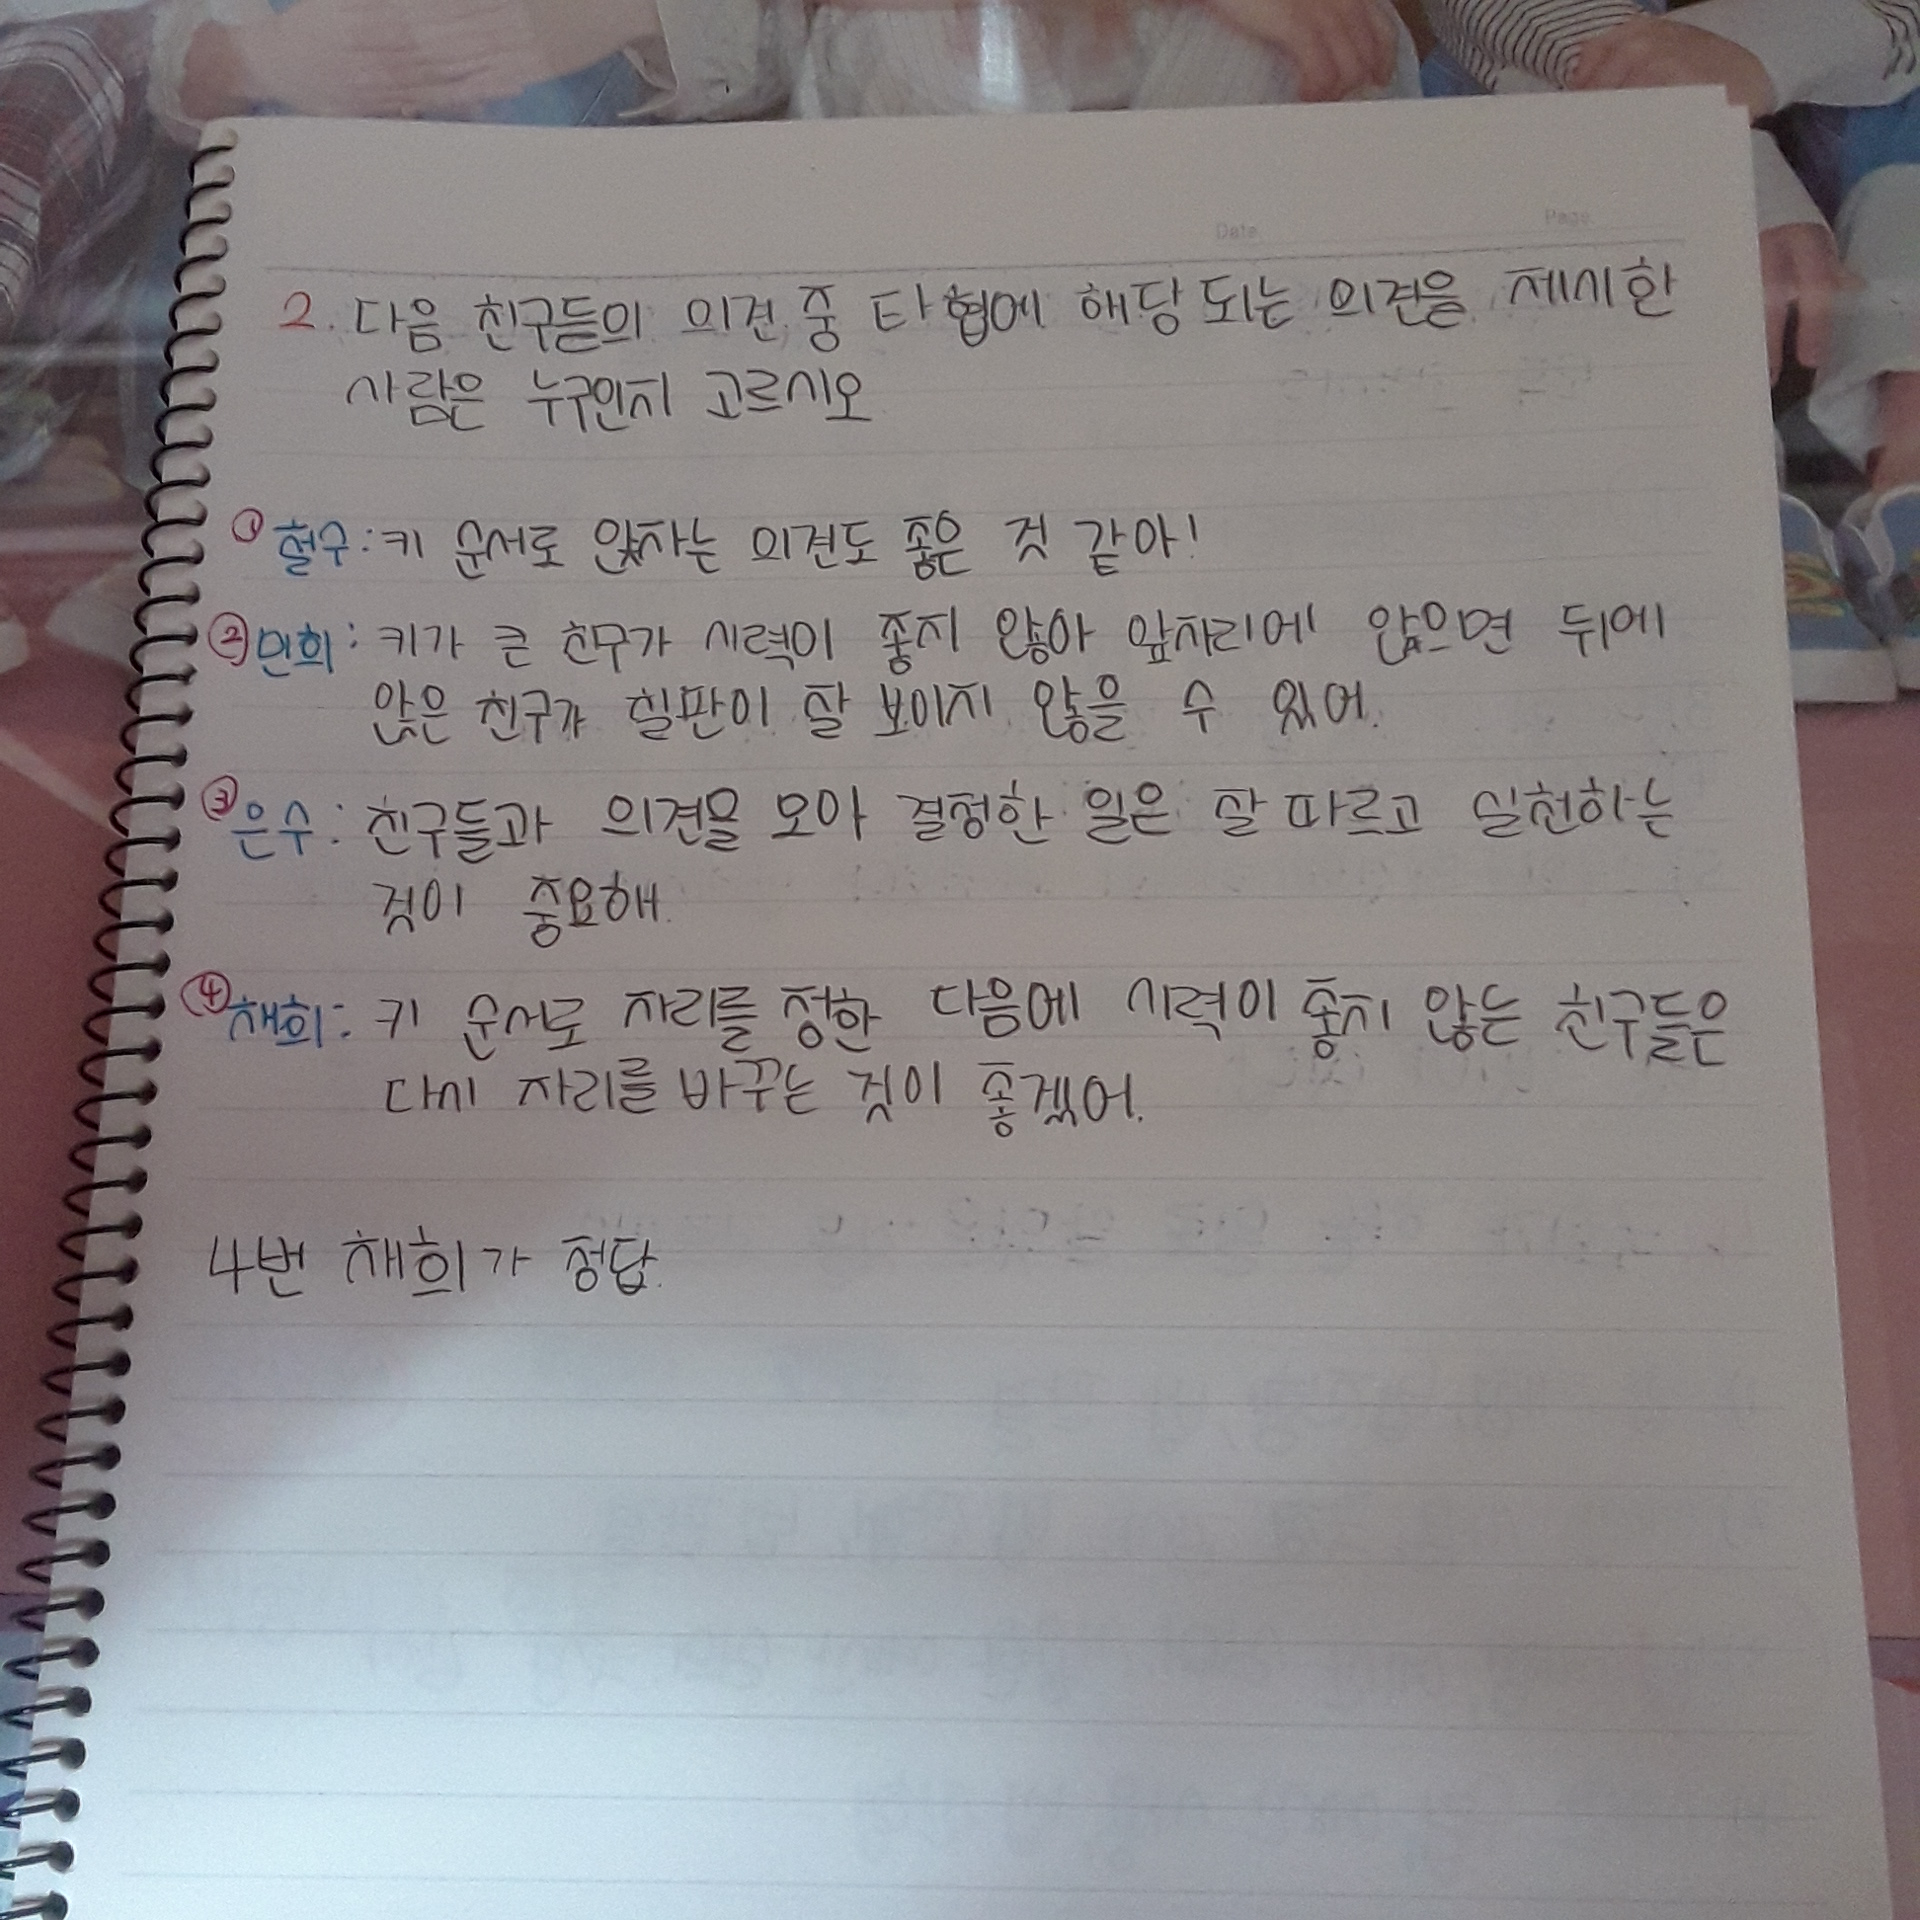 Date
Page
2. 다음 친구들의 의견 중 타협에 해당 되는 의견을 제시한
사람은 누구인지 고르시오
① 철수 : 키 순서로 앉자는 의견도 좋은 것 같아!
② 민희 : 키가 큰 친구가 시력이 좋지 않아 앞자리에 앉으면 뒤에
앉은 친구가 칠판이 잘 보이지 않을 수 있어.
③ 은수 : 친구들과 의견을 모아 결정한 일은 잘 따르고 실천하는
것이 중요해.
④ 채희 : 키 순서로 자리를 정한 다음에 시력이 좋지 않는 친구들은
다시 자리를 바꾸는 것이 좋겠어.
4번 채희가 정답.